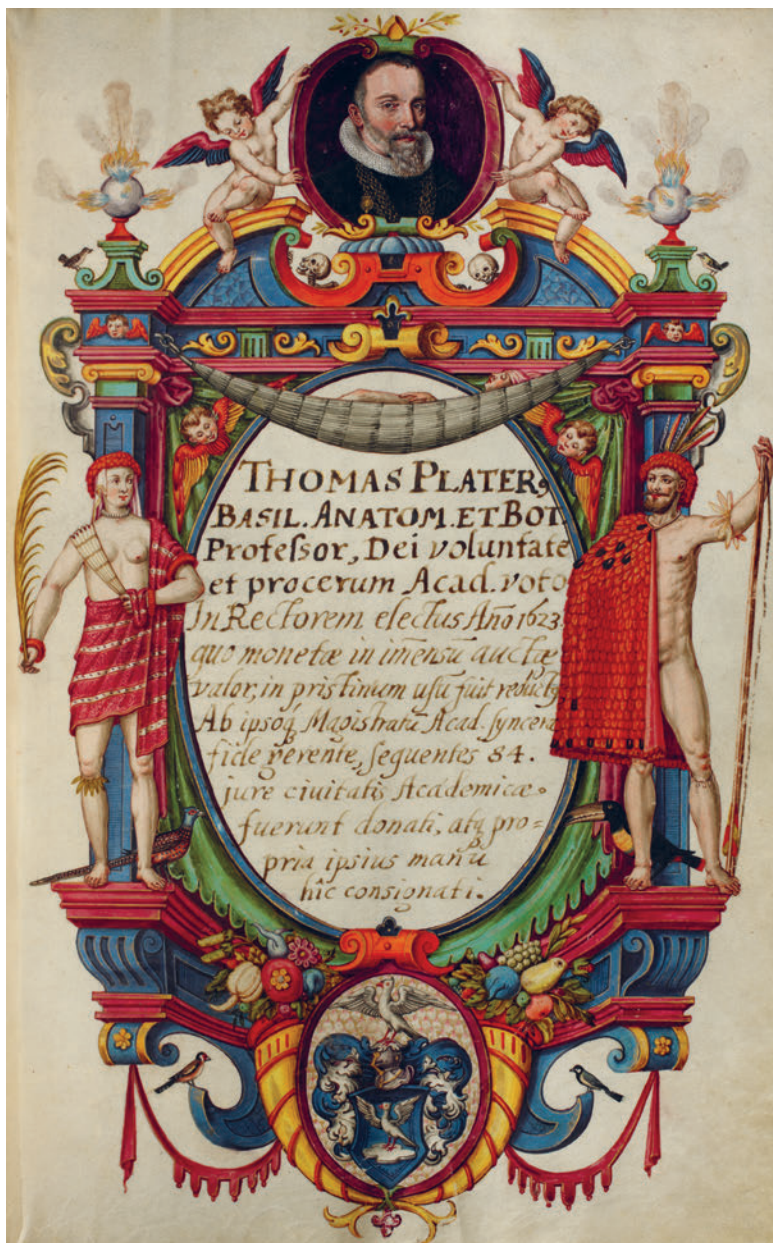 THOMAS PLATERꝰ
BASIL. ANATOM. ET BOT.
Professor, Dei voluntate
et procerum Acad. voto
In Rectorem electus Año 1623.
quo monetæ in im̄ensū auctæ
valor, in pristinum usū fuit reductꝰ
Ab ipsoq; Magistratū Acad. syncera
fide gerente, sequentes 84.
jure civitatis Academicæ
fuerunt donati, atq; pro=
pria ipsius manu
hîc consignati.